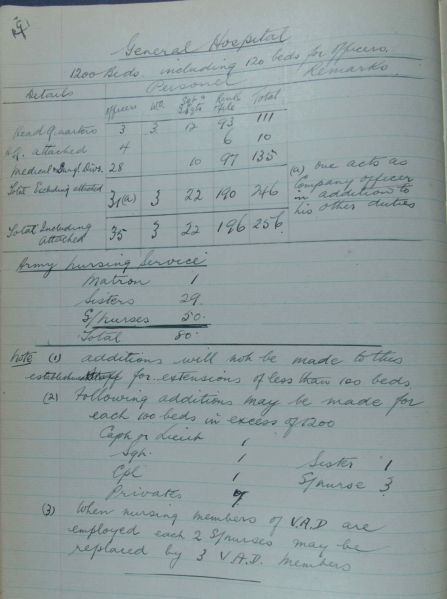 General Hospital
1200 Beds including 120 beds for officers.
Details Personnel Remarks
Officers WO Sgt & S/Sgts Rank & File Total
Head Quarters 3 3 12 93 111
attached 4 6 10
Medical & Surgl. Divs. 28 10 97 135
Total Excluding attached 31(a) 3 22 190 246
Total Including attached 35 3 22 196 256
(a) one acts as
Company officer
in addition to
his other duties
Army Nursing Service
Matron 1
Sisters 29
S/nurses 50
Total 80
Note (1) additions will not be made to this
establishment for extensions of less than 100 beds
(2) Following additions may be made for
each 100 beds in excess of 1200
Capt or Lieut 1
Sgt. 1 Sister 1
Cpl 1 S/nurse 3
Privates 7
(3) When nursing members of V.A.D are
employed each 2 S/nurses may be
replaced by 3 V.A.D. members